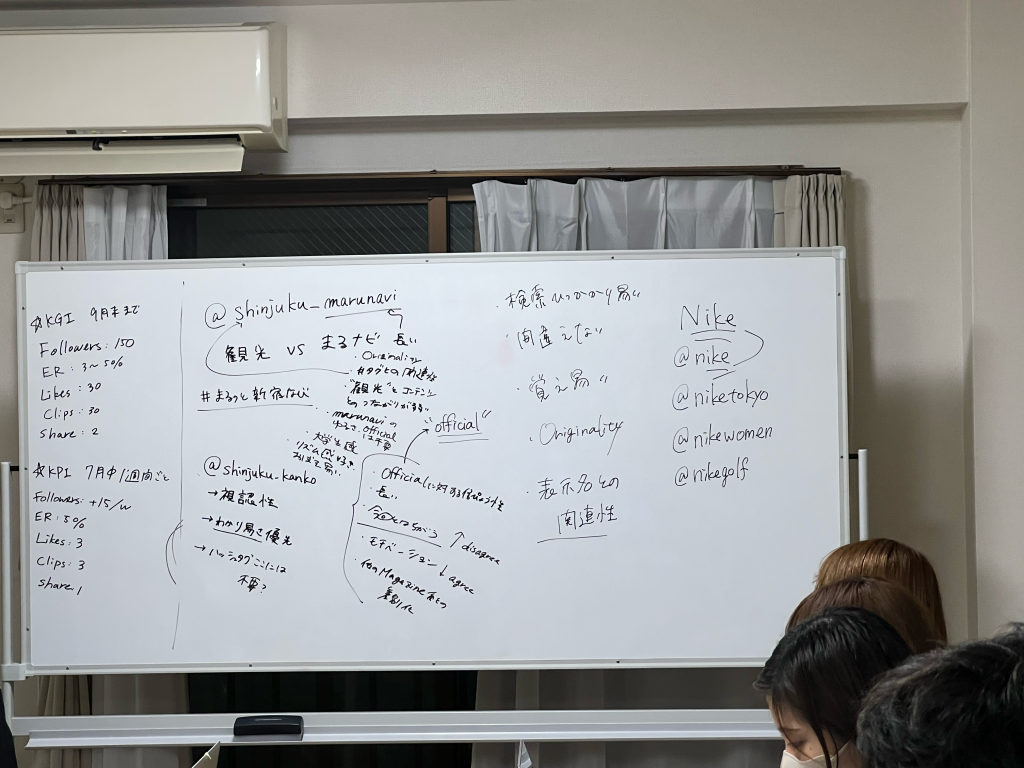 ☆KGI 9月末まで
Followers: 150
ER: 3~50%
Likes: 30
Clips: 30
Share: 2
☆KPI 7月中 1週間ごと
Followers: +15/w
ER: 50%
Likes: 3
Clips: 3
Share: 1
@shinjuku_marunavi
観光 vs まるナビ 長い
・Originality
・#タグとの関連性
・"観光"とコンテンツ
とのつながりが
#まるっと新宿なび
・marunaviの
official
"official"
@shinjuku_kanko
→視認性
→わかり易さ優先
→ハッシュタグここには
不要?
・Officialに対する
・長い
↑disagree
・モチベーション↓agree
・他のMagazine
差別化
・検索ひっかかり易い
・間違えない
・覚え易い
・Originality
・表示名との
関連性
Nike
@nike
@niketokyo
@nikewomen
@nikegolf